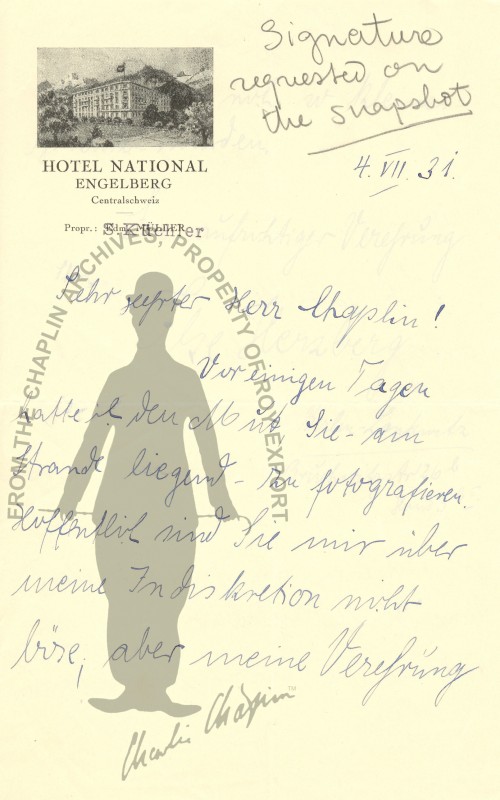 Signature
requested on
the snapshot
HOTEL NATIONAL
ENGELBERG
Centralschweiz
Propr.: Edm. MÜLLER
4. VII. 31.
Sehr geehrter Herr Chaplin!
Vor einigen Tagen
hatte ich den Mut Sie - am
Strande liegend - zu fotografieren.
Hoffentlich sind Sie mir über
meine Indiskretion nicht
böse, aber meine Verehrung
FROM THE CHAPLIN ARCHIVES, PROPERTY OF ROY EXPORT.
Charlie Chaplin™